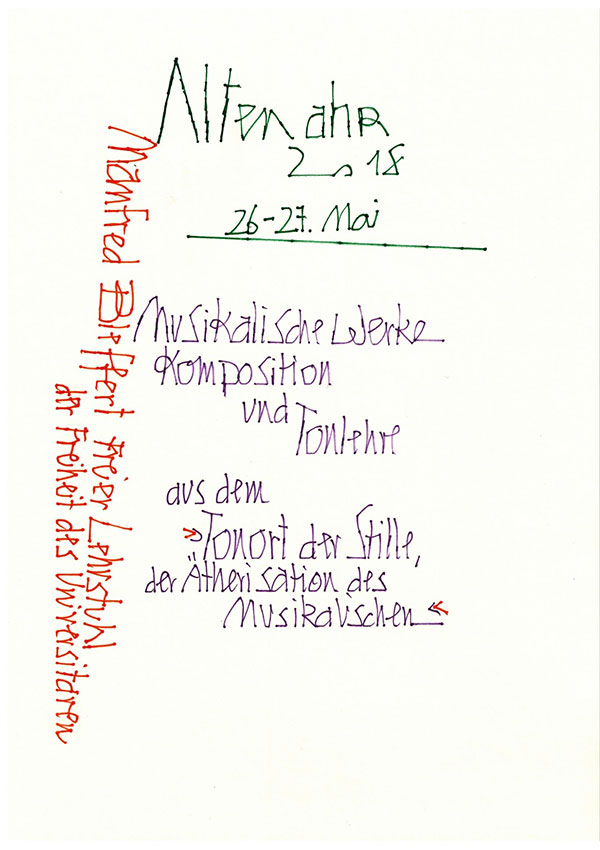 Altenahr
2018
26-27. Mai
Manfred Bleffert Freier Lehrstuhl
der Freiheit des Universitären
Musikalische Werke
Komposition
und Tonlehre
aus dem
»Tonort der Stille,
der Ätherisation des
Musikalischen«